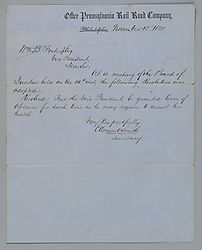 Office Pennsylvania Rail Road Company,
Philadelphia, November 1851
Vice President,
At a meeting of the Board of
Directors held on the 12th inst. the following Resolution was
adopted.
Resolved: That the Vice President be granted leave of
absence for such time as he may require to recruit his
health
Very Respectfully
Edmund Smith
Secretary